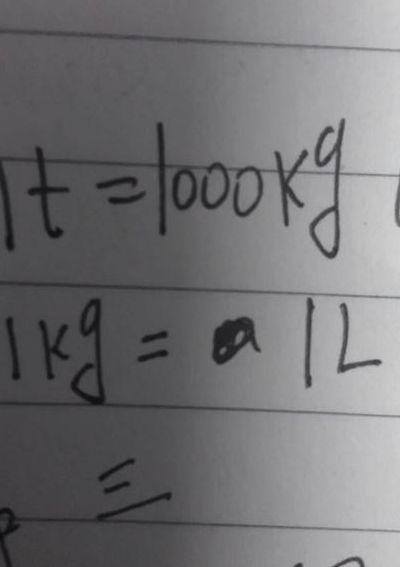 1t = 1000kg
1kg = 1L
三